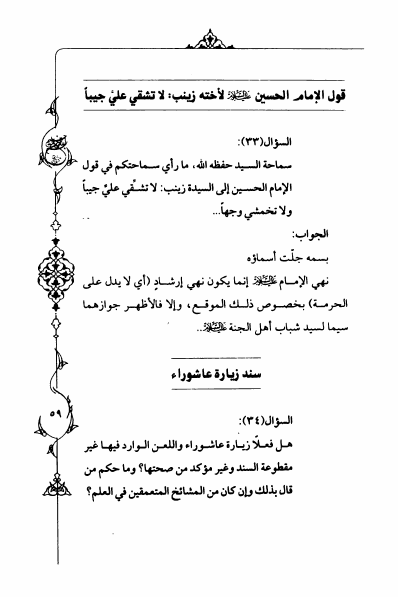 قول الإمام الحسين عليه السلام لأخته زينب: لا تشقي عليَّ جيباً
السؤال(٣٣):
سماحة السيد حفظه الله، ما رأي سماحتكم في قول
الإمام الحسين إلى السيدة زينب: لا تشقّي عليَّ جيباً
ولا تخمشي وجهاً...
الجواب:
بسمه جلّت أسماؤه
نهي الإمام عليه السلام إنما يكون نهي إرشادٍ (أي لا يدل على
الحرمة) بخصوص ذلك الموقع، وإلا فالأظهر جوازهما
سيما لسيد شباب أهل الجنة عليه السلام...
سند زيارة عاشوراء
٥٩
السؤال(٣٤):
هل فعلاً زيارة عاشوراء واللعن الوارد فيها غير
مقطوعة السند وغير مؤكد من صحتها؟ وما حكم من
قال بذلك وإن كان من المشائخ المتعمقين في العلم؟